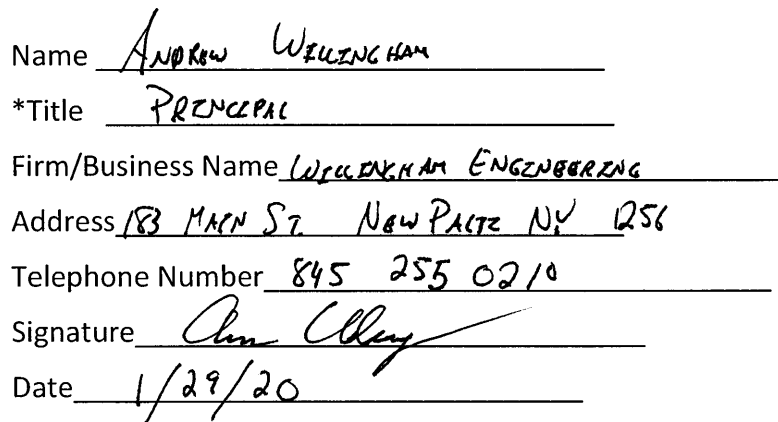 Name Andrew Willingham
*Title Principal
Firm/Business Name Willingham Engineering
Address 183 Main St. New Paltz NY 1256
Telephone Number 845 255 0210
Signature
Date 1/29/20